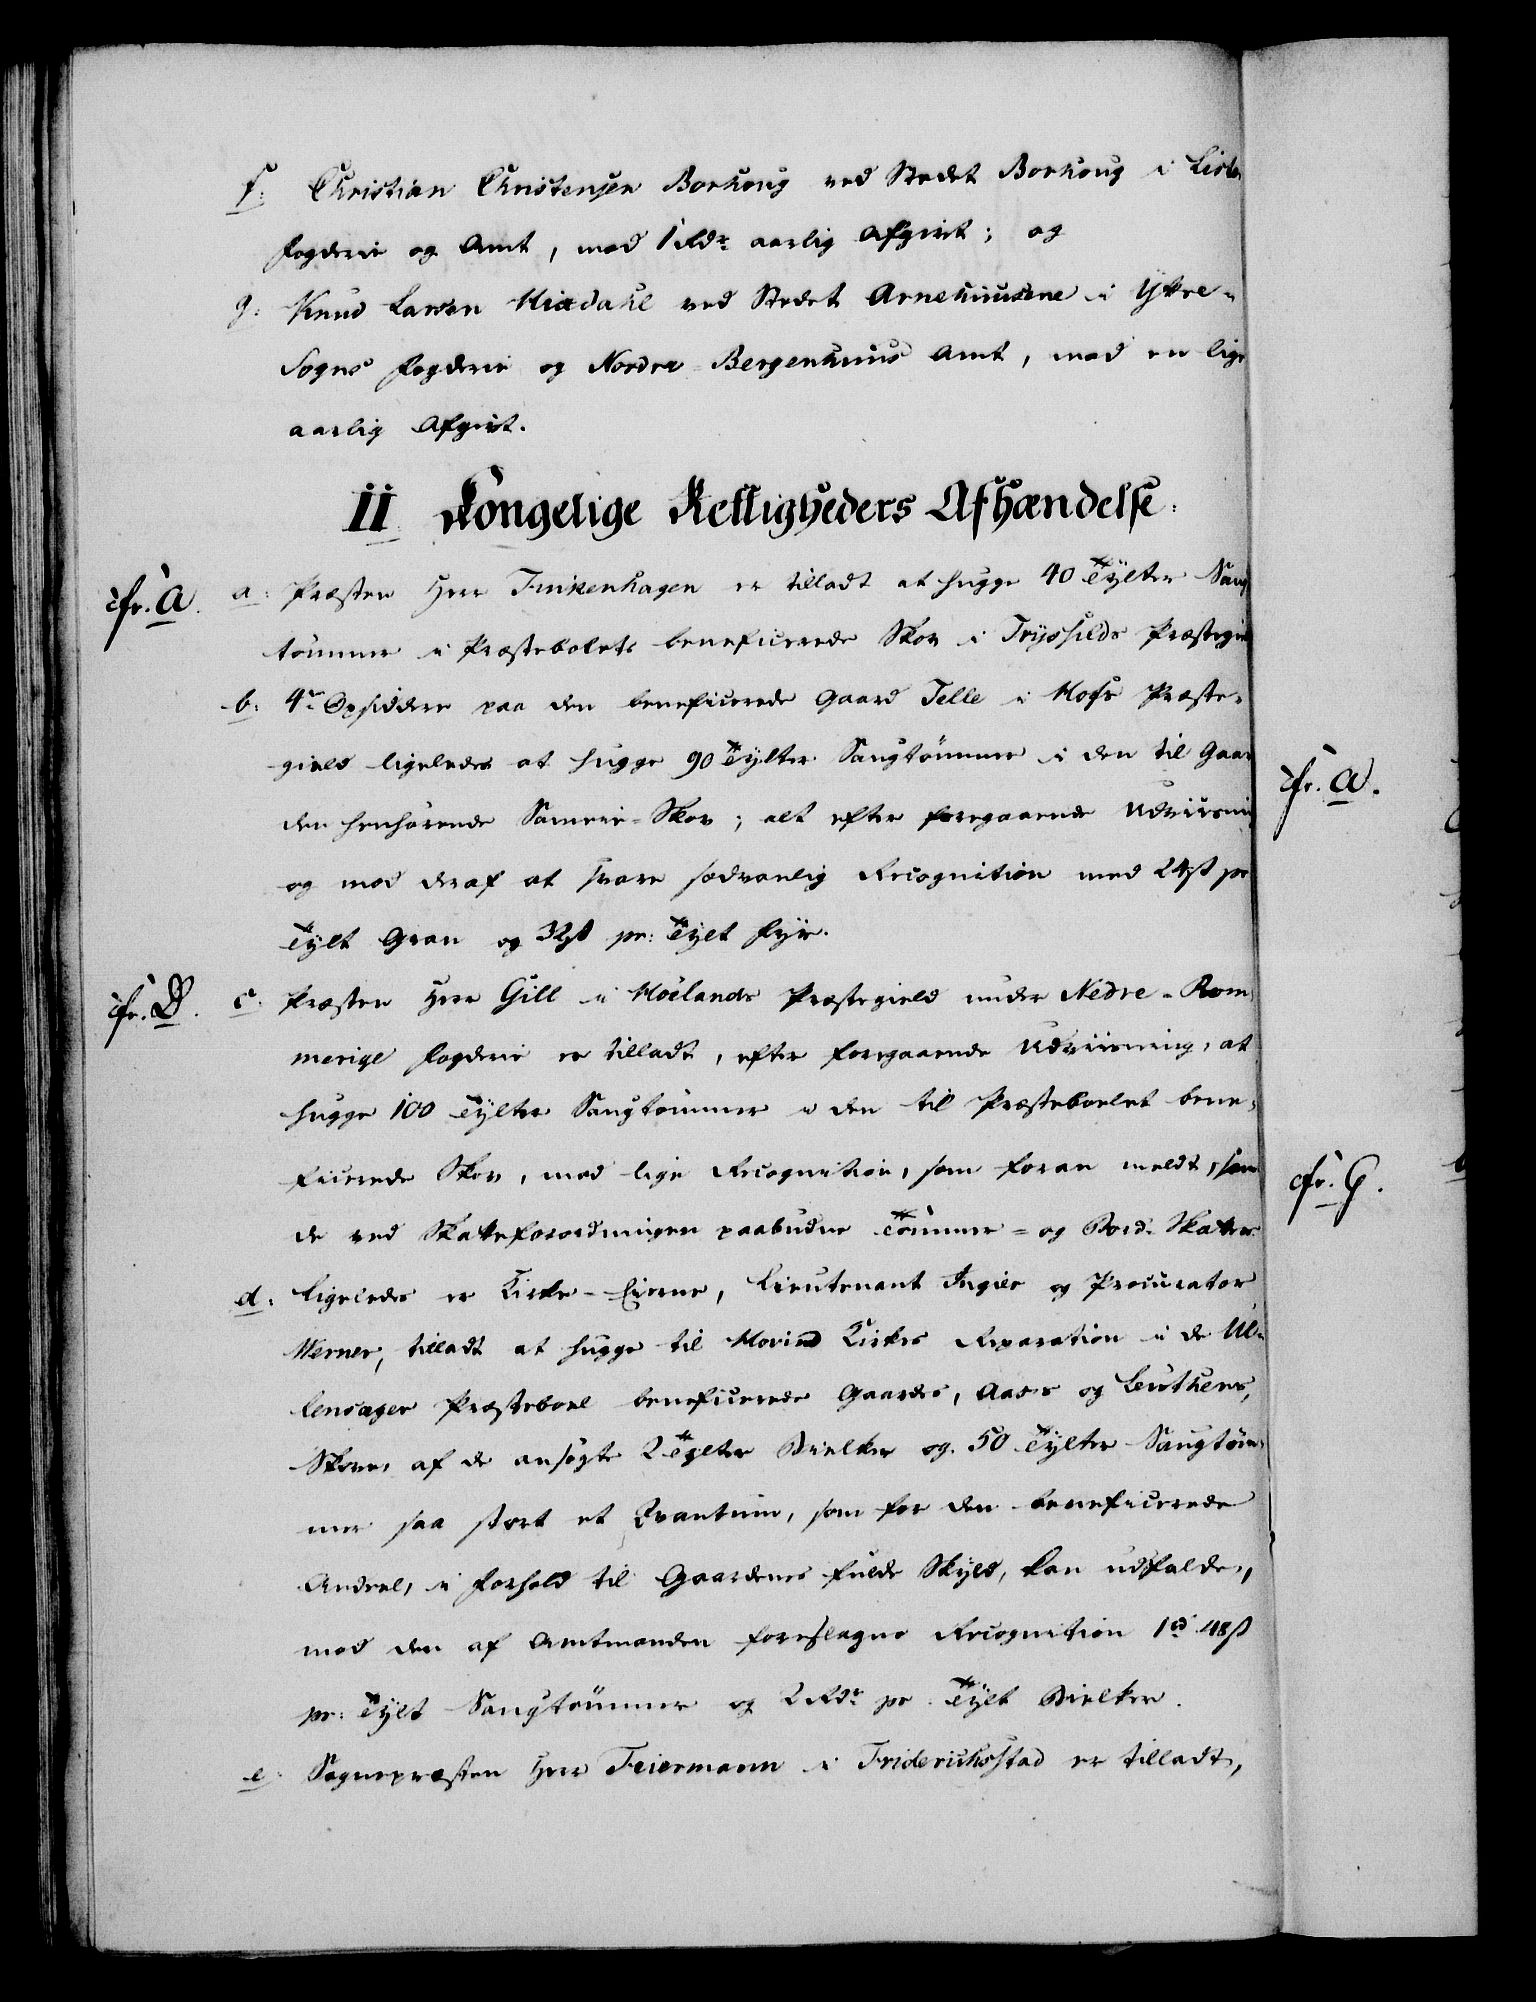 f: Christian Christensen Borhoug ved Stedet Borhoug i Lister
Fogderie og Amt, mod 1 Rdr aarlig Afgivt; og
g: Knud Larsen Miædahl ved Stedet Arnehuusene i Yttre-
Sogns Fogderie og Nordre Bergenhuus Amt, mod en lige
aarlig Afgivt.
II Kongelige Rettigheders Afhændelse.
cfr. A. a: Præsten Herr Finkenhagen er tilladt at hugge 40 Tylter Saug
tømmer i Præstebolets beneficerede Skov i Tryssilds Præstegield
b: 4re Opsiddere paa den beneficerede Gaard Telle i Moss Præste-
gield ligeledes at hugge 90 Tylter Saugtømmer i den til Gaar
den henhørende Sameie-Skov; alt efter foregaaende Udviisning
og mod deraf at svare sædvanlig Recognition med 24 ß pr
Tylt Gran og 32 ß pr: Tylt Fyr.
cfr. B. c: Præsten Herr Gill i Høelands Præstegield under Nedre-Rom
merige Fogderie er tilladt, efter foregaaende Udviisning, at
hugge 100 Tylter Saugtømmer i den til Præsteboelet bene-
ficerede Skov, mod lige Recognition, som foran meldt, samt
de ved Skatteforordningen paabudne Tømmer- og Bord-Skatter.
d: Ligeledes er Kirke-Eierne, Lieutenant Ingier og Procurator
Werner, tilladt at hugge til Hovind Kirkes Reparation i de Ul-
lensager Præsteboel beneficerede Gaardes, Aass og Leuthens,
Skove, af de ansøgte 2 Tylter Bielker og 50 Tylter Saugtøm-
mer saa stort et Qvantum, som for den beneficerede
Andeel, i Forhold til Gaardenes fulde Skyld, kan udfalde,
mod den af Amtmanden foreslagne Recognition 1 rd 48 ß
pr: Tylt Saugtømmer og 2 Rdr pr. Tylt Bielker.
e: Sognepræsten Herr Feiermann i Friderichsstad er tilladt,
cfr. A.
cfr. G.